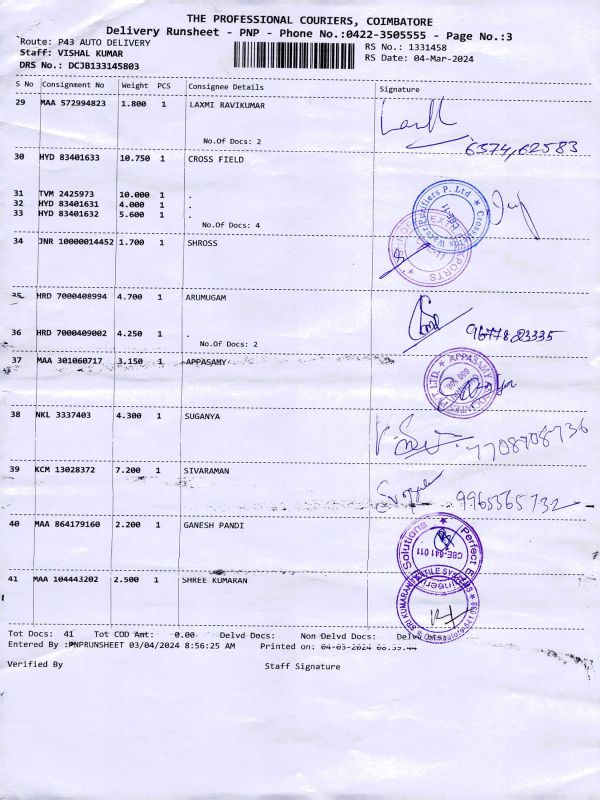 THE PROFESSIONAL COURIERS, COIMBATORE
Delivery Runsheet - PNP - Phone No.:0422-3505555 - Page No.:3
Route: P43 AUTO DELIVERY
RS No.: 1331458
Staff: VISHAL KUMAR
RS Date: 04-Mar-2024
DRS No.: DCJB133145803
S No Consignment No Weight PCS Consignee Details Signature
29 MAA 572994823 1.800 1 LAXMI RAVIKUMAR
No.Of Docs: 2
6374,62583
30 HYD 83401633 10.750 1 CROSS FIELD
31 TVM 2425973 10.000 1 .
32 HYD 83401631 4.000 1 .
33 HYD 83401632 5.600 1 .
No.Of Docs: 4
34 JNR 10000014452 1.700 1 SHROSS
35 HRD 7000408994 4.700 1 ARUMUGAM
36 HRD 7000409002 4.250 1 .
No.Of Docs: 2
37 MAA 301060717 3.150 1 APPASAMY
APPASAMY
38 NKL 3337403 4.300 1 SUGANYA
7708708736
39 KCM 13028372 7.200 1 SIVARAMAN
9965565732
40 MAA 864179160 2.200 1 GANESH PANDI
Perfect
Solutions
CBE-641 011
41 MAA 104443202 2.500 1 SHREE KUMARAN
SRI KUMARAN
Tot Docs: 41 Tot COD Amt: 0.00 Delvd Docs: Non Delvd Docs:
Entered By :PNPRUNSHEET 03/04/2024 8:56:25 AM Printed on:
Verified By Staff Signature